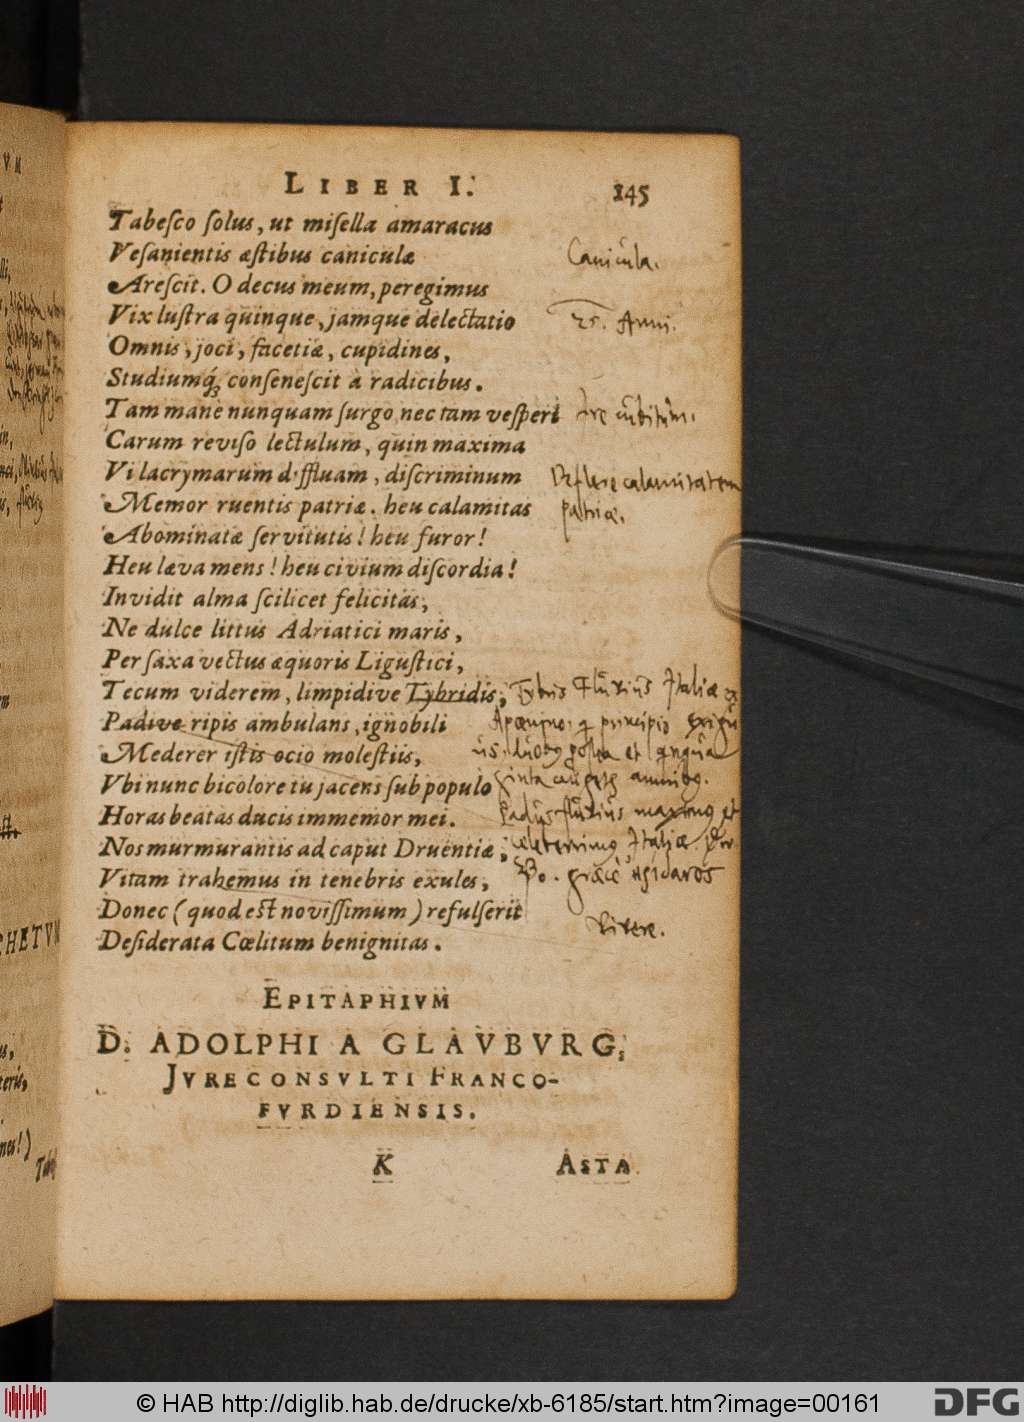 LIBER I. 145
Tabeſco ſolus, ut miſella amaracus
Veſanientis æſtibus caniculæ
Areſcit. O decus meum, peregimus
Vix luſtra quinque, jamque delectatio
Omnis, joci, facetiæ, cupidines,
Studiumq́; conſeneſcit à radicibus.
Tam mane nunquam ſurgo, nec tam veſperi
Carum reviſo lectulum, quin maxima
Vi lacrymarum diffluam, diſcriminum
Memor ruentis patriæ. heu calamitas
Abominatæ ſervitutis! heu furor!
Heu læva mens! heu civium diſcordia!
Invidit alma ſcilicet felicitas,
Ne dulce littus Adriatici maris,
Per ſaxa vectus æquoris Liguſtici,
Tecum viderem, limpidive Tybridis,
Padive ripis ambulans, ignobili
Mederer iſtis ocio moleſtiis,
Vbi nunc bicolore tu jacens ſub populo
Horas beatas ducis immemor mei.
Nos murmurantis ad caput Druentiæ,
Vitam trahemus in tenebris exules,
Donec (quod eſt noviſſimum) refulſerit
Deſiderata Cœlitum benignitas.
Canicula.
25. Anni.
Ire cubitum.
Deflere calamitatem
patriæ.
Tybris Fluvius Italiæ
principio
et
amnibus.
Padus fluvius maximus et
celeberrimus Italiæ.
Po. græcè
Vivere.
EPITAPHIVM
D. ADOLPHI A GLAVBVRG,
JVRECONSVLTI FRANCO-
FVRDIENSIS.
K ASTA
© HAB http://diglib.hab.de/drucke/xb-6185/start.htm?image=00161
DFG